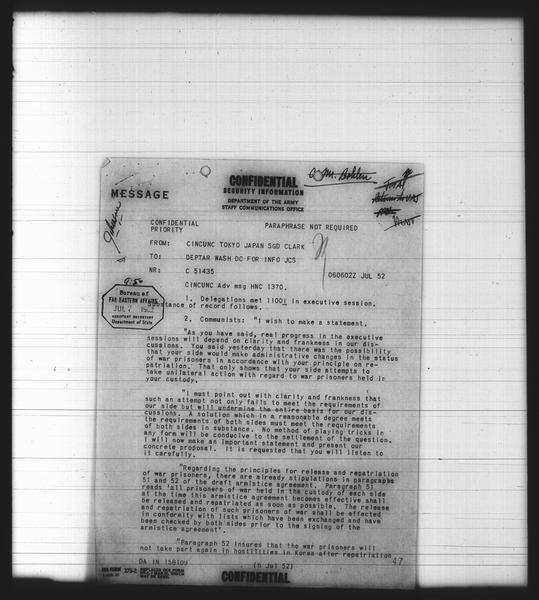 CONFIDENTIAL
SECURITY INFORMATION
DEPARTMENT OF THE ARMY
STAFF COMMUNICATIONS OFFICE
MESSAGE
Mr. Bohlen
CONFIDENTIAL
PRIORITY
PARAPHRASE NOT REQUIRED
FROM: CINCUNC TOKYO JAPAN SGD CLARK
TO: DEPTAR WASH DC FOR INFO JCS
NR: C 51435
060602Z JUL 52
CINCUNC Adv msg HNC 1370.
9:50
Bureau of
FAR EASTERN AFFAIRS
JUL 7
ASSISTANT SECRETARY
Department of State
1. Delegations met 1100I in executive session.
Substance of record follows.
2. Communists: "I wish to make a statement.
"As you have said, real progress in the executive
sessions will depend on clarity and frankness in our dis-
cussions. You said yesterday that there was the possibility
that your side would make administrative changes in the status
of war prisoners in accordance with your principle on re-
patriation. That only shows that your side attempts to
take unilateral action with regard to war prisoners held in
your custody.
"I must point out with clarity and frankness that
such an attempt not only fails to meet the requirements of
our side but will undermine the entire basis for our dis-
cussions. A solution which in a reasonable degree meets
the requirements of both sides must meet the requirements
of both sides in substance. No method of playing tricks in
any form will be conducive to the settlement of the question.
I will now make an important statement and present our
concrete proposal. It is requested that you will listen to
it carefully.
"Regarding the principles for release and repatriation
of war prisoners, there are already stipulations in paragraphs
51 and 52 of the draft armistice agreement. Paragraph 51
reads 'all prisoners of war held in the custody of each side
at the time this armistice agreement becomes effective shall
be released and repatriated as soon as possible. The release
and repatriation of such prisoners of war shall be effected
in conformity with lists which have been exchanged and have
been checked by both sides prior to the signing of the
armistice agreement'.
"Paragraph 52 insures that the war prisoners will
not take part again in hostilities in Korea after repatriation
47
DA IN 158109
(6 Jul 52)
375-2
REPLACES OCS FORM
CONFIDENTIAL